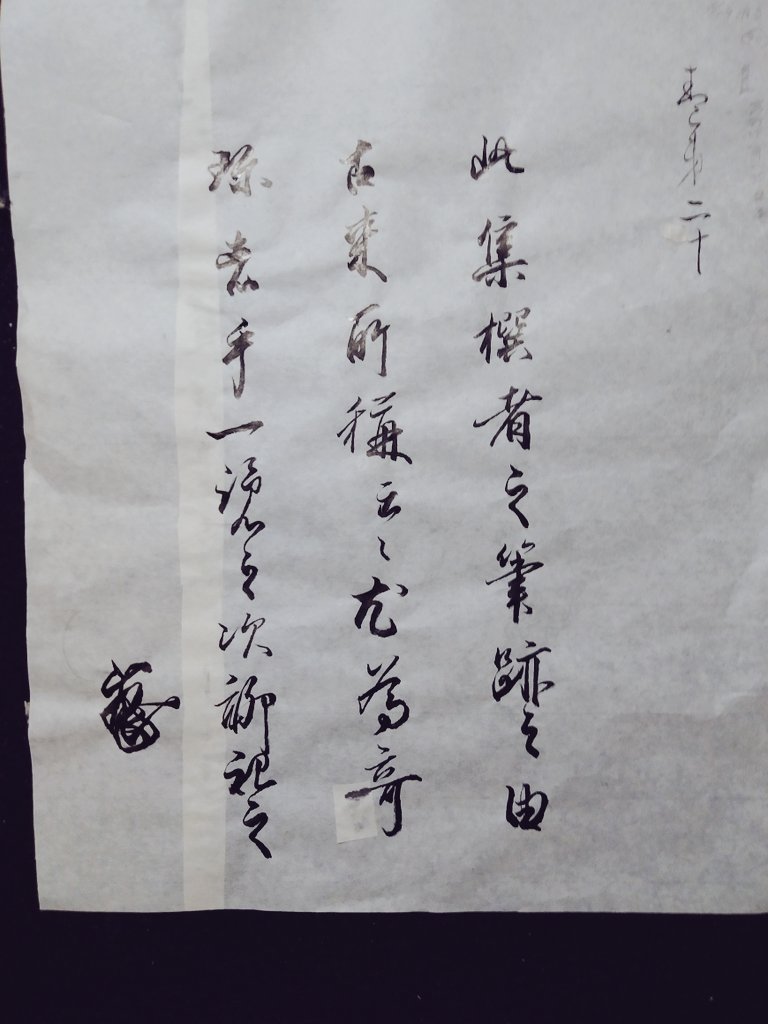 巻第二十
此集撰者之筆跡之由
古来所稱云々尤為奇
珍者乎一覧之次聊記之